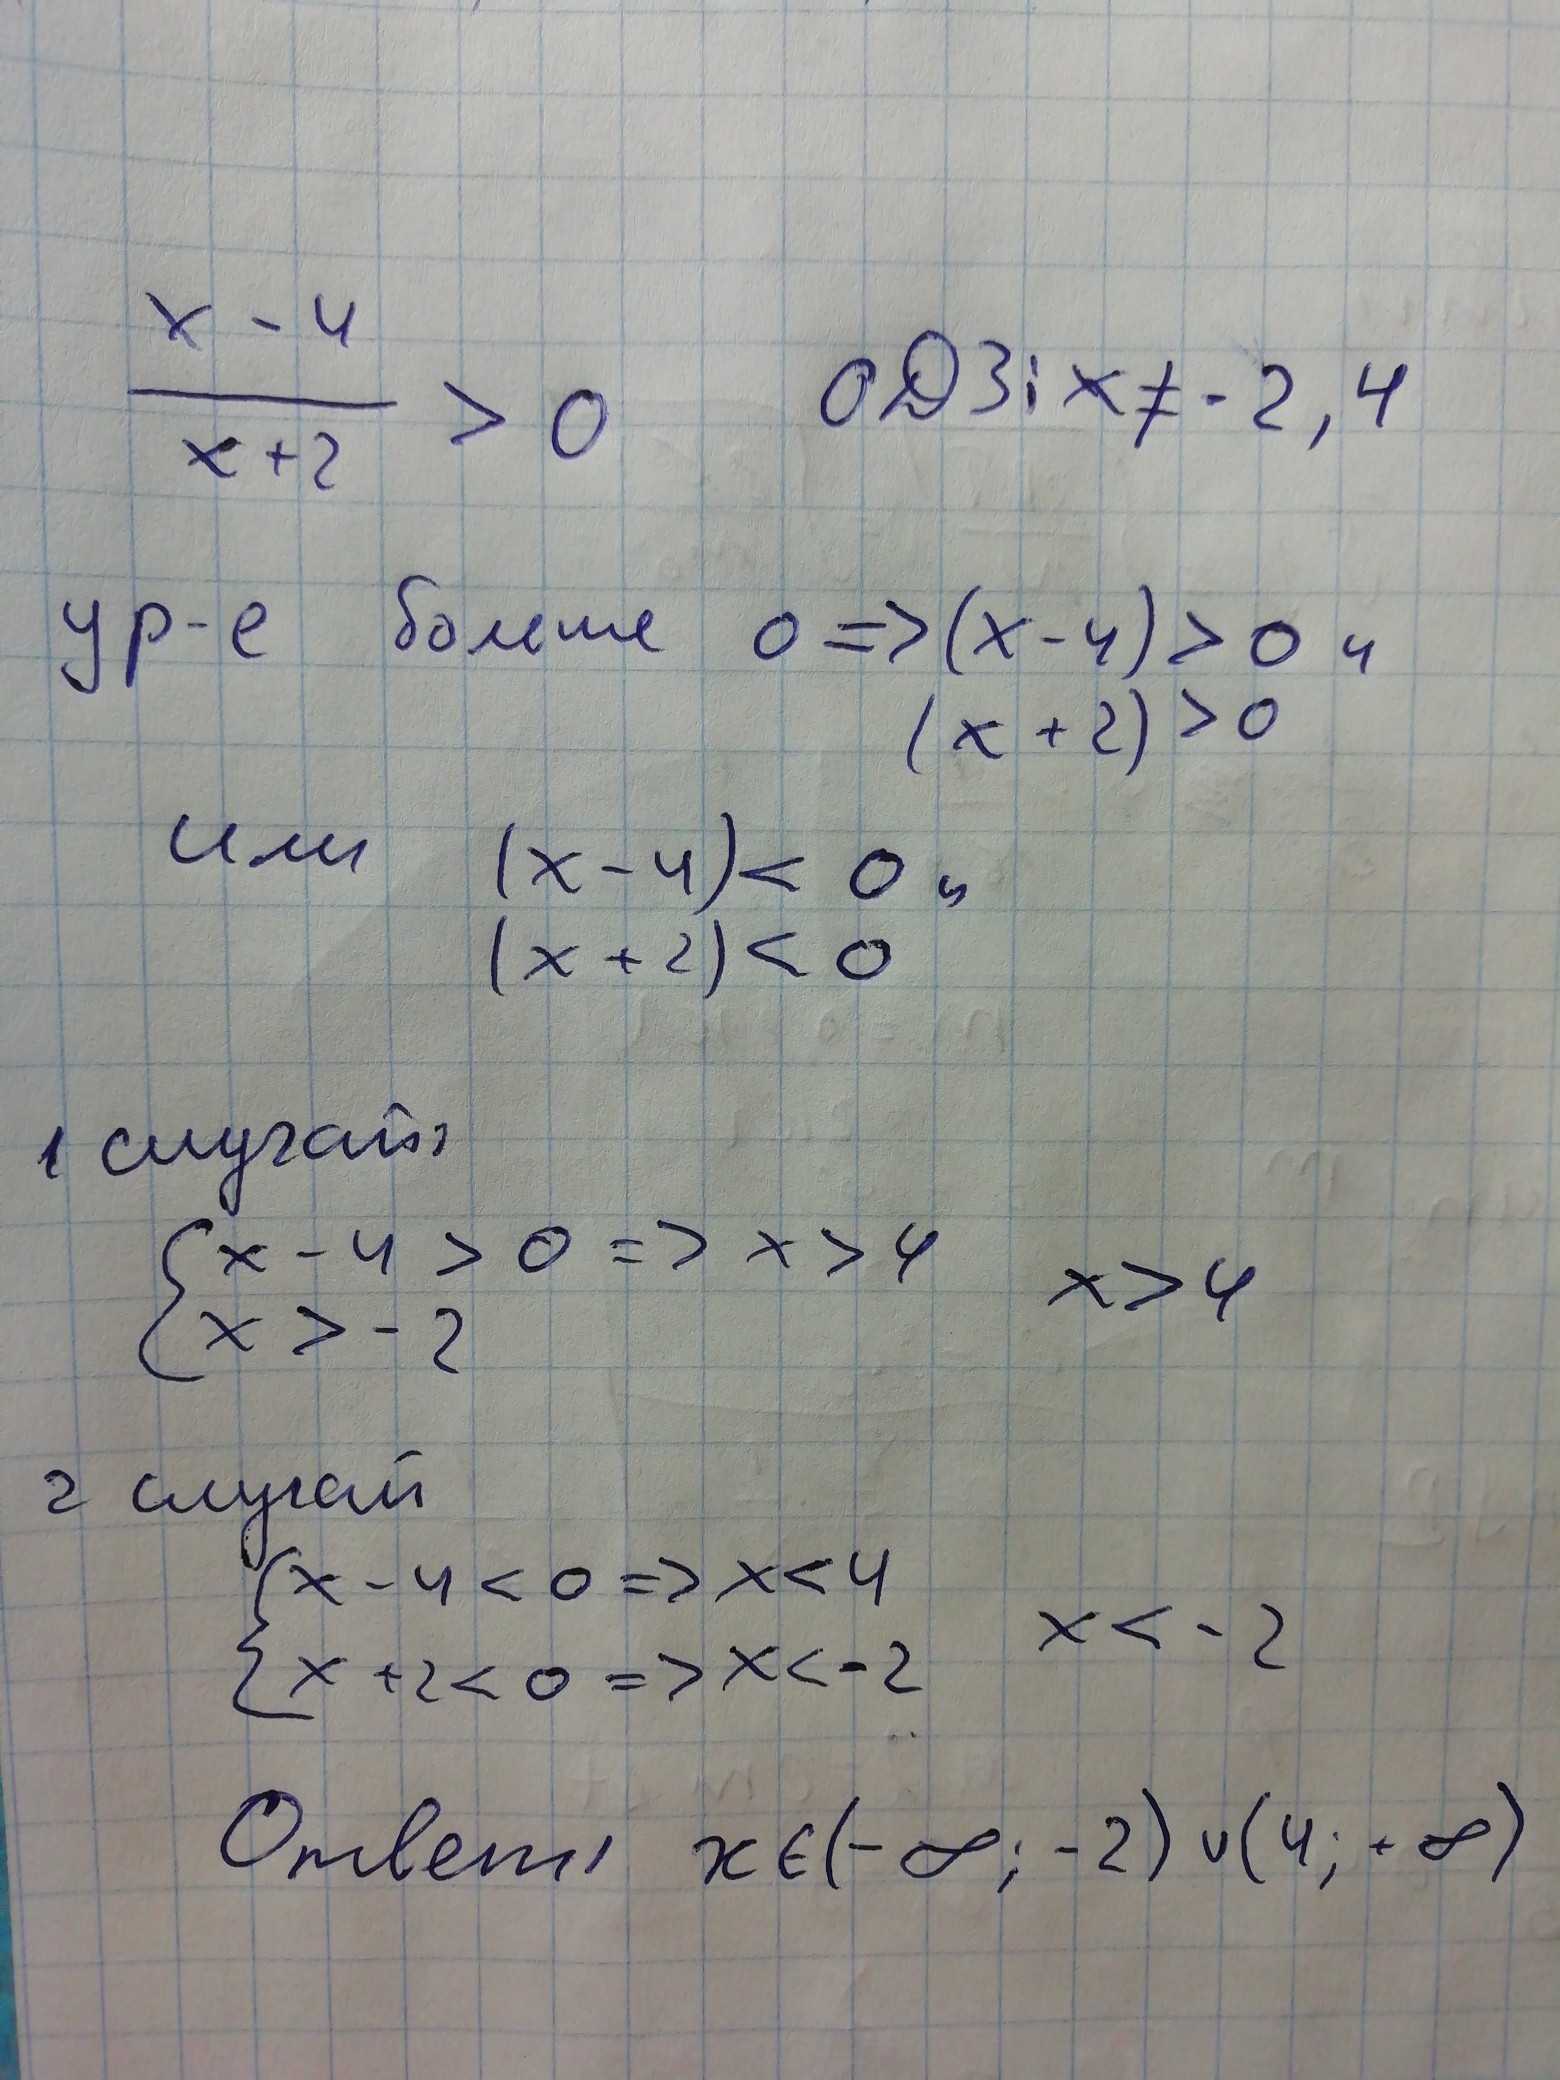 x - 4
x+2
> 0
ОДЗ: x ≠ - 2, 4
ур-е больше 0 => (x - 4) > 0 и
(x + 2) > 0
или (x - 4) < 0 и
(x + 2) < 0
1 случай:
{ x - 4 > 0 => x > 4
x > 4
x > - 2
2 случай
{ x - 4 < 0 => x < 4
x + 2 < 0 => x < - 2
x < - 2
Ответ: x ∈ (- ∞; - 2) ∪ (4; + ∞)